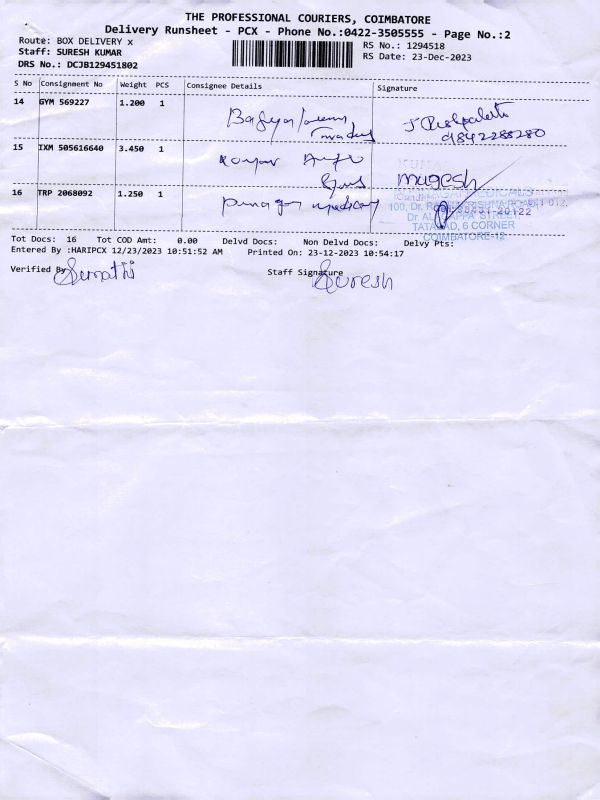 THE PROFESSIONAL COURIERS, COIMBATORE
Delivery Runsheet - PCX - Phone No.:0422-3505555 - Page No.:2
Route: BOX DELIVERY x
RS No.: 1294518
Staff: SURESH KUMAR
RS Date: 23-Dec-2023
DRS No.: DCJB129451802
S No Consignment No Weight PCS Consignee Details Signature
14 GYM 569227 1.200 1
9842288280
15 IXM 505616640 3.450 1
mugesh
16 TRP 2068092 1.250 1
TATABAD, 6 CORNER
COIMBATORE-12
Tot Docs: 16 Tot COD Amt: 0.00 Delvd Docs: Non Delvd Docs: Delvy Pts:
Entered By :HARIPCX 12/23/2023 10:51:52 AM Printed On: 23-12-2023 10:54:17
Verified By Sumathi Staff Signature Suresh